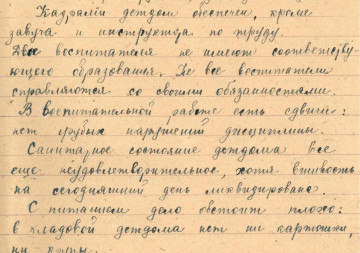 Кадрами детдом обеспечен, кроме
завуча и инструктора по труду.
Два воспитателя не имеют соответству-
ющего образования. Не все воспитатели
справляются со своими обязанностями.
В воспитательной работе есть сдвиги:
нет грубых нарушений дисциплины.
Санитарное состояние детдома все
еще неудовлетворительное, хотя вшивость
на сегодняшний день ликвидирована.
С питанием дело обстоит плохо:
в кладовой детдома нет ни картошки,
ни крупы.